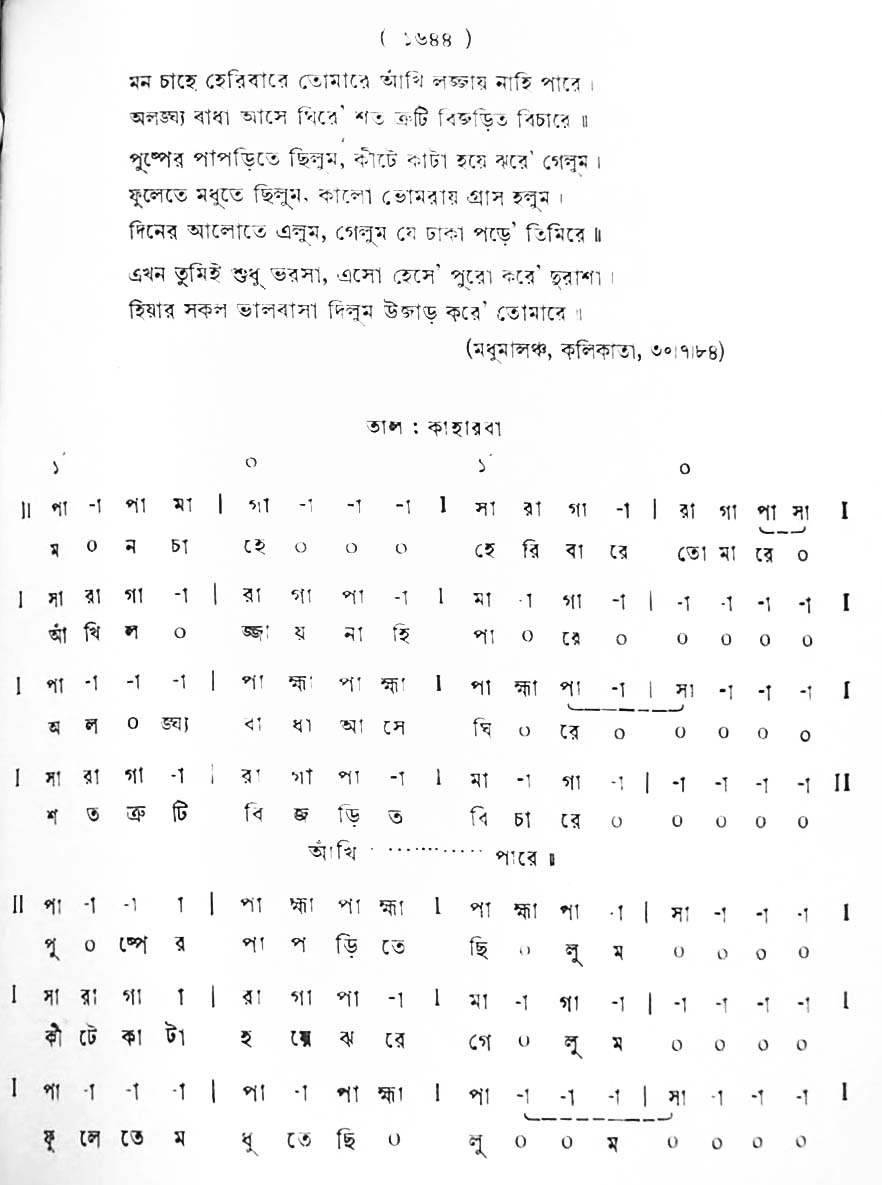 ( ১৬৪৪ )
মন চাহে হেরিবারে তোমারে আঁখি লজ্জায় নাহি পারে ।
অলঙ্ঘ্য বাধা আসে ঘিরে' শত ত্রুটি বিজড়িত বিচারে ॥
পুষ্পের পাপড়িতে ছিলুম, কীটে কাটা হয়ে ঝরে' গেলুম ।
ফুলেতে মধুতে ছিলুম, কালো ভোমরায় গ্রাস হলুম ।
দিনের আলোতে এলুম, গেলুম যে ঢাকা পড়ে' তিমিরে ॥
এখন তুমিই শুধু ভরসা, এসো হেসে' পুরো করে' দুরাশা ।
হিয়ার সকল ভালবাসা দিলুম উজাড় করে' তোমারে ॥
(মধুমালঞ্চ, কলিকাতা, ৩০।৭।৮৪)
তাল : কাহারবা
১´ ০ ১´ ০
II পা -া পা মা | গা -া -া -া I সা রা গা -া | রা গা পা সা I
ম ০ ন চা হে ০ ০ ০ হে রি বা রে তো মা রে ০
I সা রা গা -া | রা গা পা -া I মা -া গা -া | -া -া -া -া I
আঁ খি ল ০ জ্জা য় না হি পা ০ রে ০ ০ ০ ০ ০
I পা -া -া -া | পা হ্মা পা হ্মা I পা হ্মা পা -া | সা -া -া -া I
অ ল ০ ঙ্ঘ্য বা ধা আ সে ঘি ০ রে ০ ০ ০ ০ ০
I সা রা গা -া | রা গা পা -া I মা -া গা -া | -া -া -া -া II
শ ত ত্রু টি বি জ ড়ি ত বি চা রে ০ ০ ০ ০ ০
আঁখি ·············· পারে ॥
II পা -া -া া | পা হ্মা পা হ্মা I পা হ্মা পা -া | সা -া -া -া I
পু ০ ষ্পে র পা প ড়ি তে ছি ০ লু ম ০ ০ ০ ০
I সা রা গা া | রা গা পা -া I মা -া গা -া | -া -া -া -া I
কী টে কা টা হ য়ে ঝ রে গে ০ লু ম ০ ০ ০ ০
I পা -া -া -া | পা -া পা হ্মা I পা -া -া -া | সা -া -া -া I
ফু লে তে ম ধু তে ছি ০ লু ০ ০ ম ০ ০ ০ ০